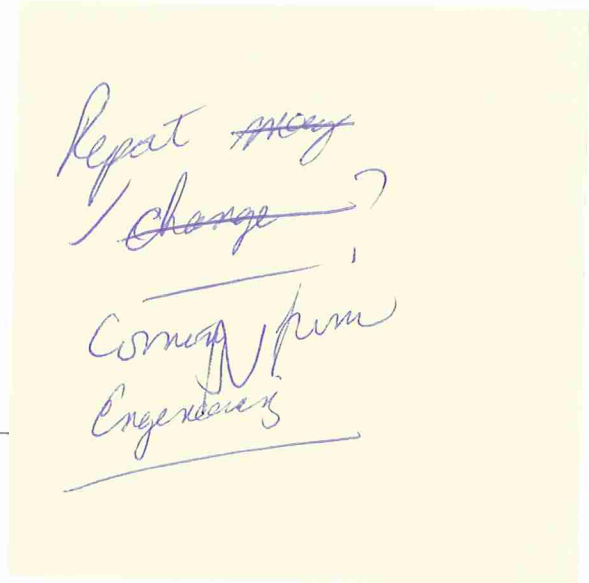 Report may
change ?
Coming from
Engeneering